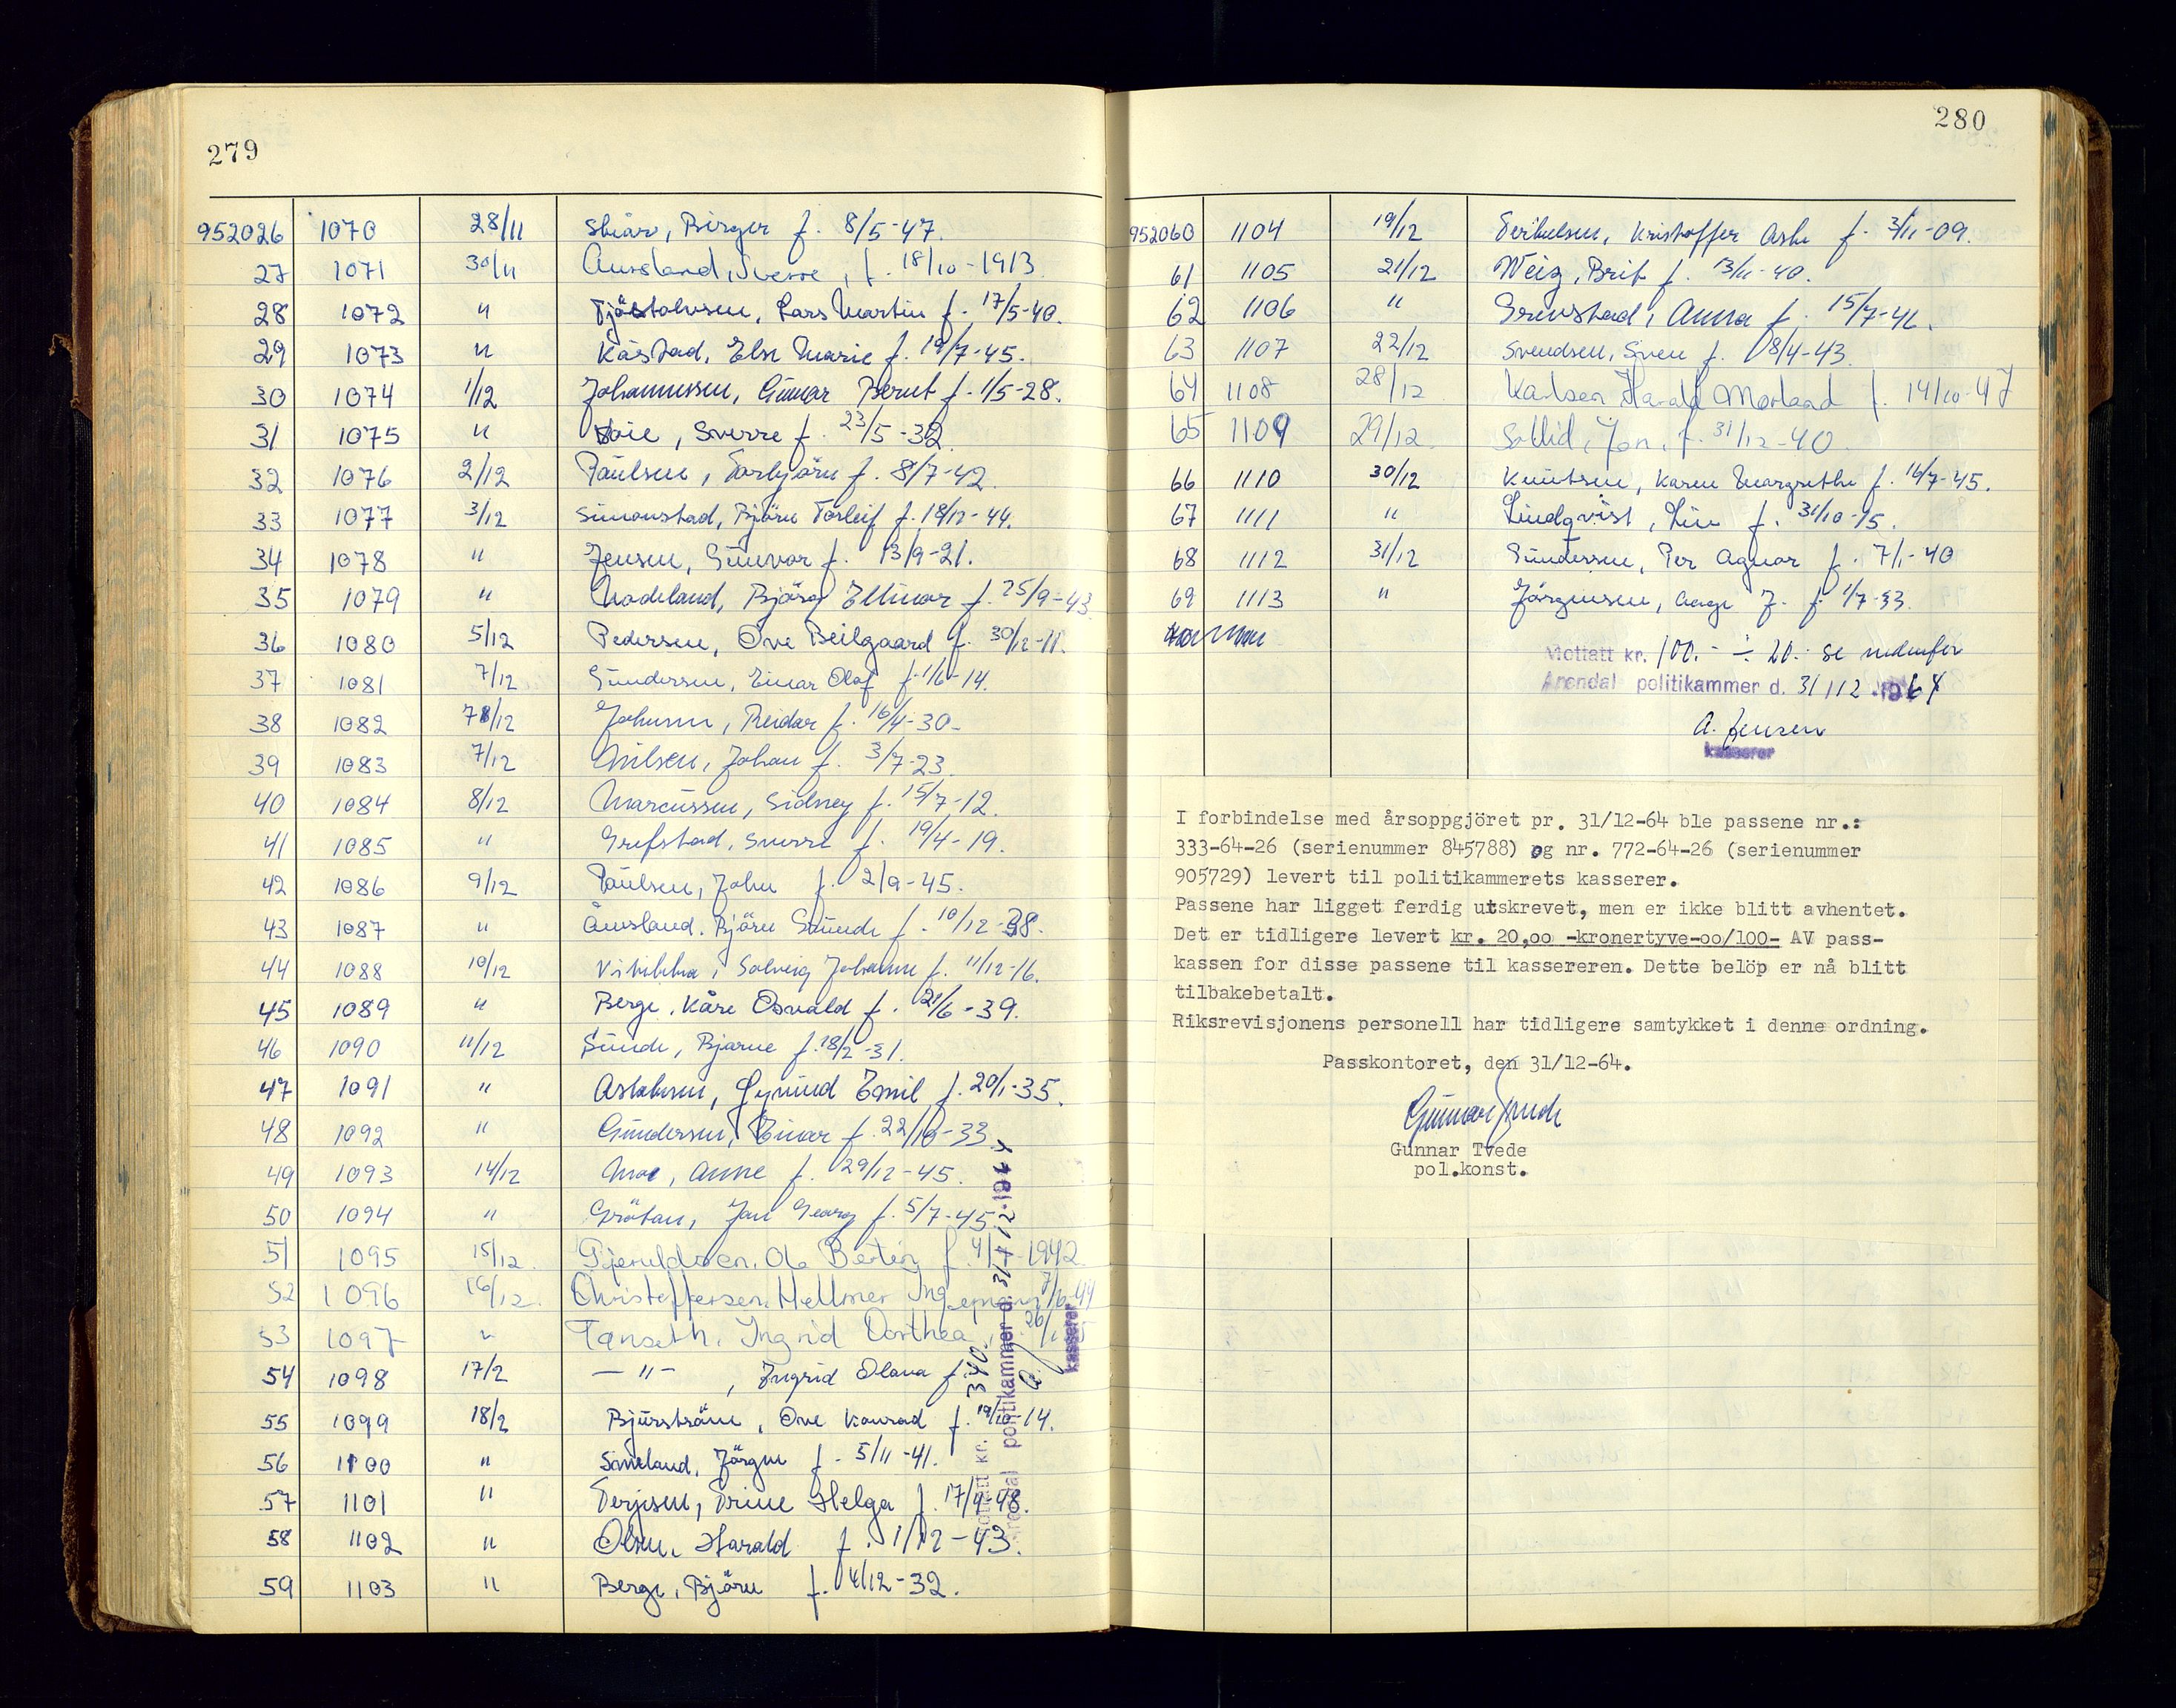 279
952026 1070 28/11 Skiær, Birger f. 8/5-47.
27 1071 30/11 Aursland, Sverre, f. 18/10-1913
28 1072 " Lars Martin f. 17/5-40.
29 1073 " Kåstad, Else Marie f. 19/7-45.
30 1074 1/12 Johannessen, Gunnar Bernt f. 1/5-28.
31 1075 " Voie, Sverre f. 23/5-32
32 1076 2/12 Paulsen, Torbjörn f. 8/7-42.
33 1077 3/12 Simonstad, Björn Torleif f. 18/12-44.
34 1078 " Jensen, Gunvor f. 13/9-21.
35 1079 " Modeland, Björg Ellinor f. 25/9-43
36 1080 5/12 Pedersen, Ove Beilgaard f. 30/12-11.
37 1081 7/12 Gundersen, Einar Olaf f. 1/6-14.
38 1082 7/12 Johnsen, Reidar f. 16/4-30-
39 1083 7/12 Nilsen, Johan f. 3/7-23.
40 1084 8/12 Marcussen, Sidney f. 15/7-12.
41 1085 " Grefstad, Sverre f. 19/4-19.
42 1086 9/12 Paulsen, John f. 2/9-45.
43 1087 " Åmsland, Björn f. 10/12-38.
44 1088 10/12 Solveig Johanne f. 11/12-16.
45 1089 " Berge, Kåre Osvald f. 21/6-39.
46 1090 11/12 Sunde, Bjarne f. 18/2-31.
47 1091 " Aslaksen, Öyvind Emil f. 20/1-35.
48 1092 " Gundersen, Einar f. 22/10-33.
49 1093 14/12 Moe, Anne f. 29/12-45.
50 1094 " Gråtan, Jan Georg f. 5/7-45.
51 1095 15/12. Gjeruldsen, Ola Bertin f. 4/ -1942.
52 1096 16/12. Christoffersen, Hellmer Ingemann 7/6-44
53 1097 " Tanseth, Ingrid Dorthea, 26/
54 1098 17/2 — " — , Ingrid Olava f.
55 1099 18/2 Bjurström, Ove Konrad f. 19/10-14.
56 1100 " Jörgen f. 5/11-41.
57 1101 " Terjesen, Trine Helga f. 17/9-48.
58 1102 " Olsen, Harald f. 1/12-43.
59 1103 " Berge, Björn f. 4/12-32.
Mottatt kr. 340.
Arendal politikammer d. 31/12-1964
kasserer
280
952060 1104 19/12 Terkelsen, Kristoffer Ask f. 3/11-09.
61 1105 21/12 Weig, Brit f. 13/11-40.
62 1106 " Grevstad, Anna f. 15/7-46.
63 1107 22/12 Svendsen, Sven f. 18/4-43.
64 1108 28/12 Karlsen Harald Morland f. 14/10-47
65 1109 29/12. Sollid, Jon, f. 31/12-40.
66 1110 30/12 Knutsen, Karen Margrethe f. 16/7-45.
67 1111 " Lindqvist, f. 31/10-15.
68 1112 31/12 Gundersen, Per Agnar f. 7/1-40
69 1113 " Jörgensen, Aage J. f. 1/7-33.
Mottatt kr. 100.- ÷ 20.- se nedenfor
Arendal politikammer d. 31/12 1964
A. Jensen
kasserer
I forbindelse med årsoppgjöret pr. 31/12-64 ble passene nr.:
333-64-26 (serienummer 845788) og nr. 772-64-26 (serienummer
905729) levert til politikammerets kasserer.
Passene har ligget ferdig utskrevet, men er ikke blitt avhentet.
Det er tidligere levert kr. 20,oo -kronertyve-oo/100- AV pass-
kassen for disse passene til kassereren. Dette belöp er nå blitt
tilbakebetalt.
Riksrevisjonens personell har tidligere samtykket i denne ordning.
Passkontoret, den 31/12-64.
Gunnar Tvede
Gunnar Tvede
pol.konst.